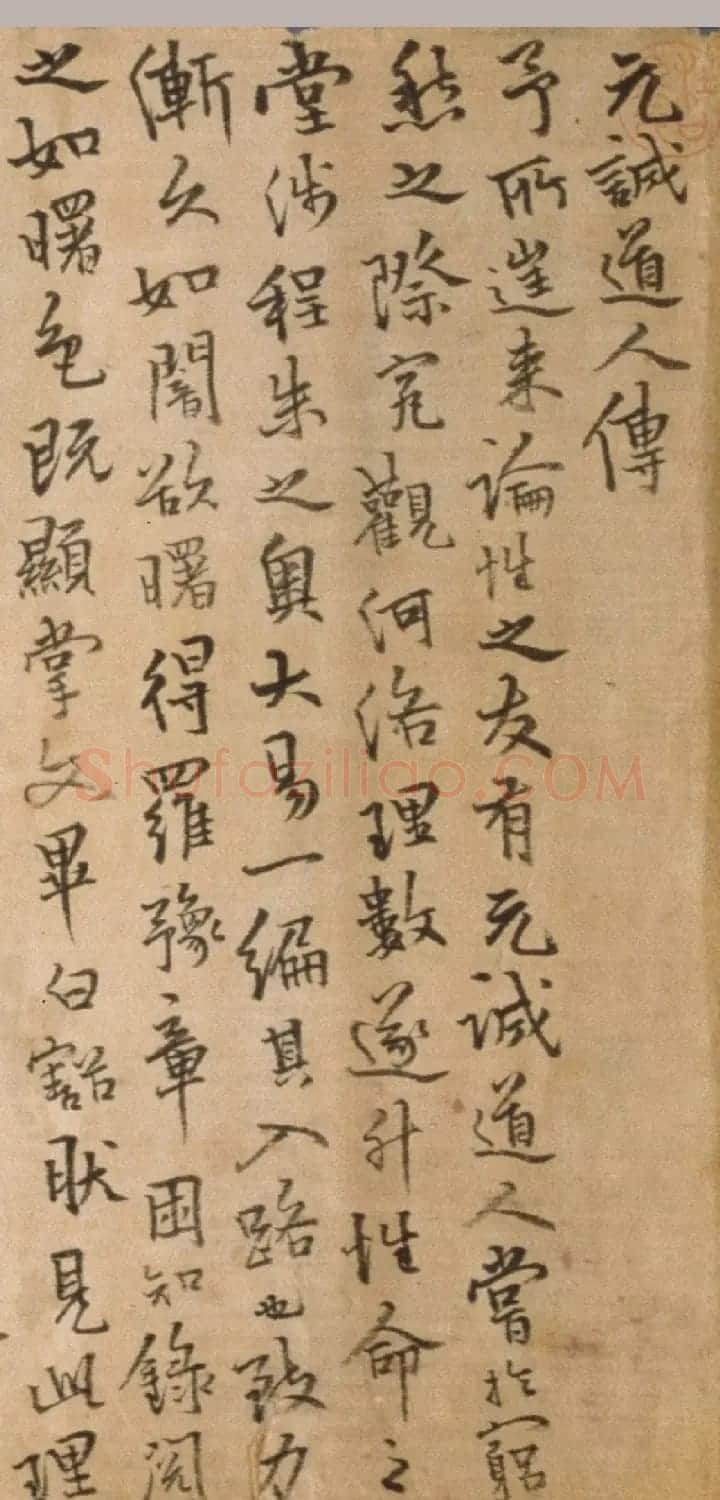 元誠道人傳
予所遊來論性之友有元誠道人嘗於窮
愁之際究觀河洛理數遂升性命之
堂涉程朱之奧大易一編其入路也致力
漸久如闇欲曙得羅豫章困知錄閱
之如曙色既顯掌文畢白豁然見此理
Shufaziliao.COM